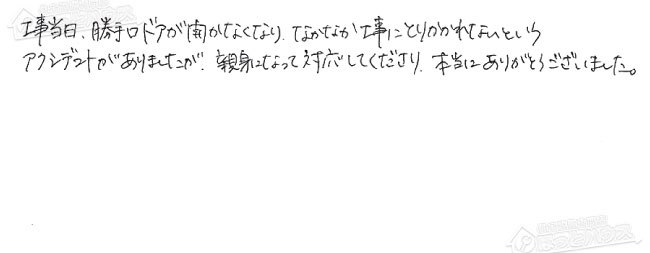 工事当日、勝手口ドアが開かなくなり、なかなか工事にとりかかれないという
アクシデントがありましたが、親身になって対応してくださり、本当にありがとうございました。